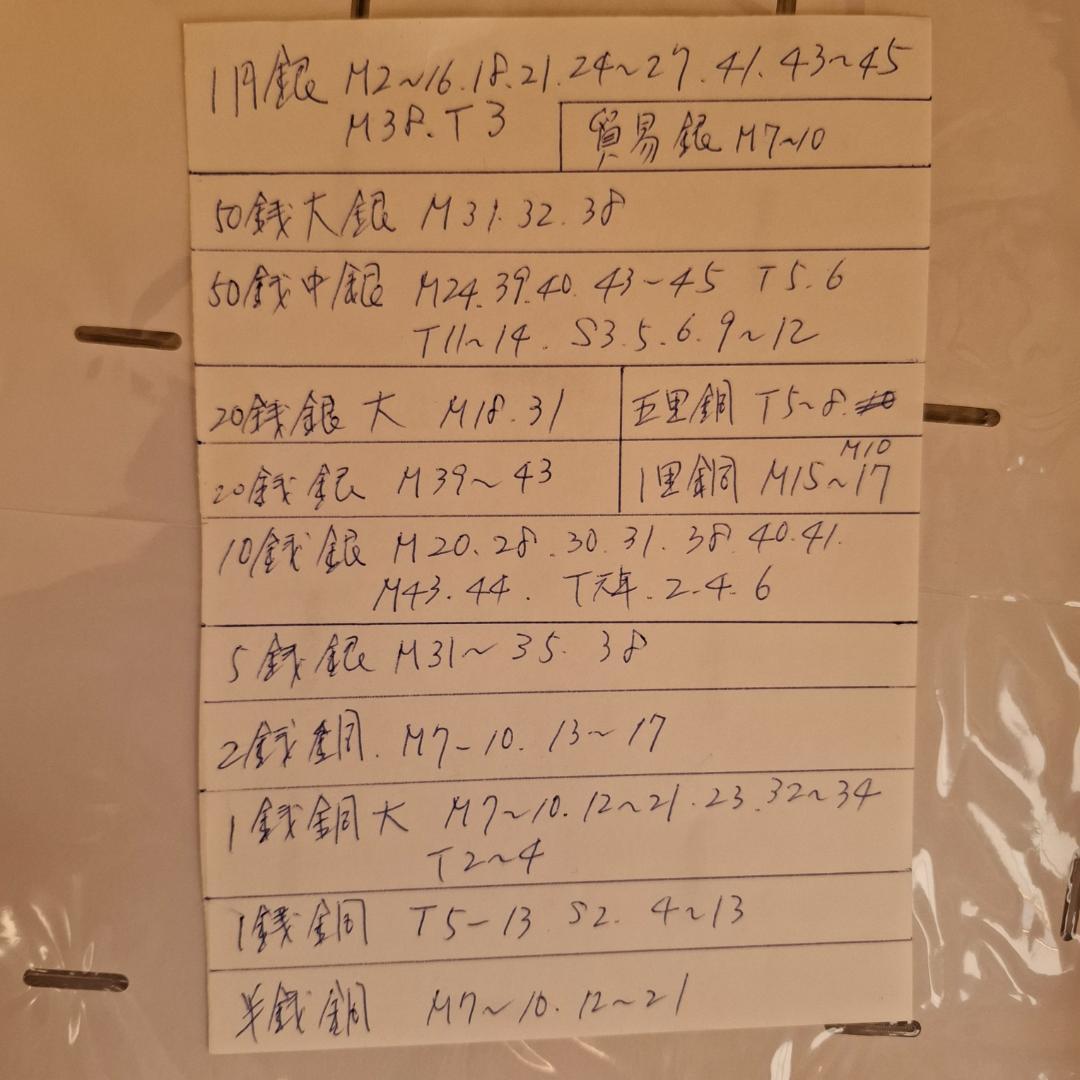 1円銀 M2~16.18.21.24~27.41.43~45
M38.T3
貿易銀 M7~10
50銭大銀 M31.32.38
50銭中銀 M24.39.40.43~45 T5.6
T11~14. S3.5.6.9~12
20銭銀大 M18.31
五里銅 T5~8.
20銭銀 M39~43
M10
1里銅 M15~17
10銭銀 M20.28.30.31.38.40.41.
M43.44. T元年.2.4.6
5銭銀 M31~35.38
2銭銅. M7~10.13~17
1銭銅大 M7~10.12~21.23.32~34
T2~4
1銭銅 T5-13 S2. 4~13
半銭銅 M7~10.12~21